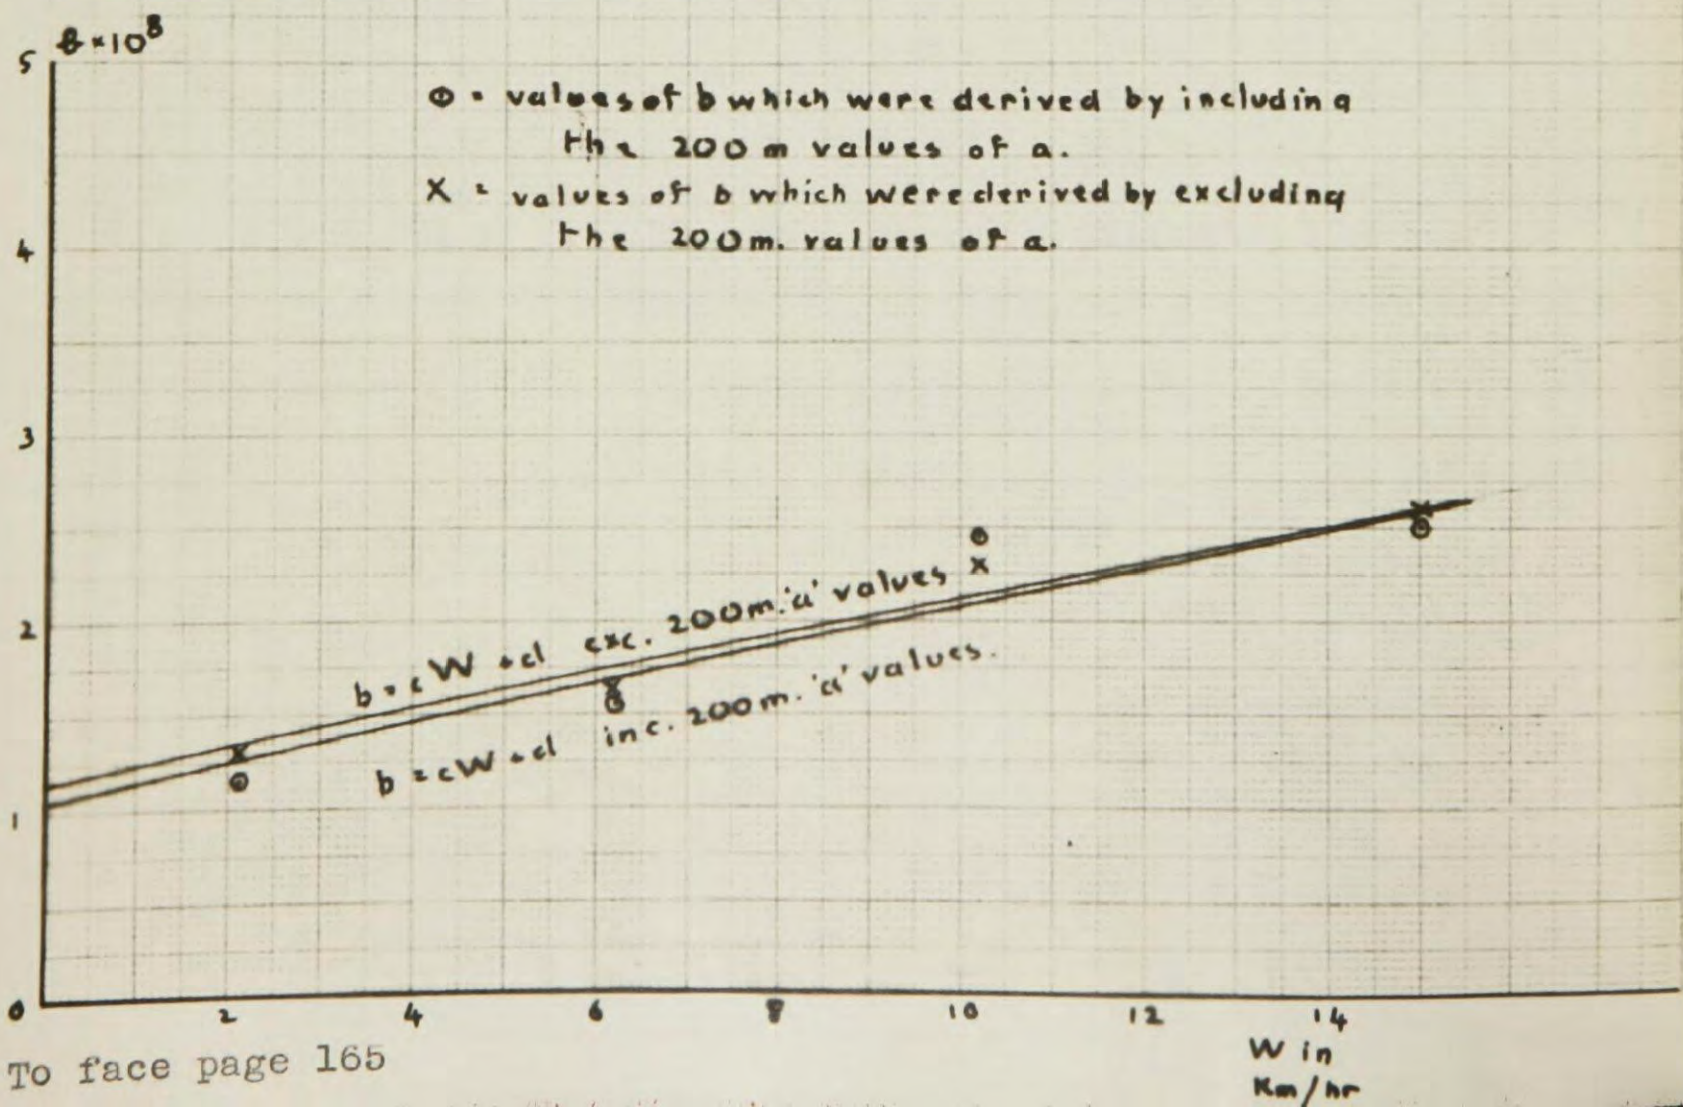 b × 10⁸
5
⊙ = values of b which were derived by including
the 200 m values of a.
X = values of b which were derived by excluding
the 200 m. values of a.
4
3
2
b = cW + d exc. 200 m. 'a' values
b = cW + d inc. 200 m. 'a' values.
1
0 2 4 6 8 10 12 14
W in
Km/hr
To face page 165